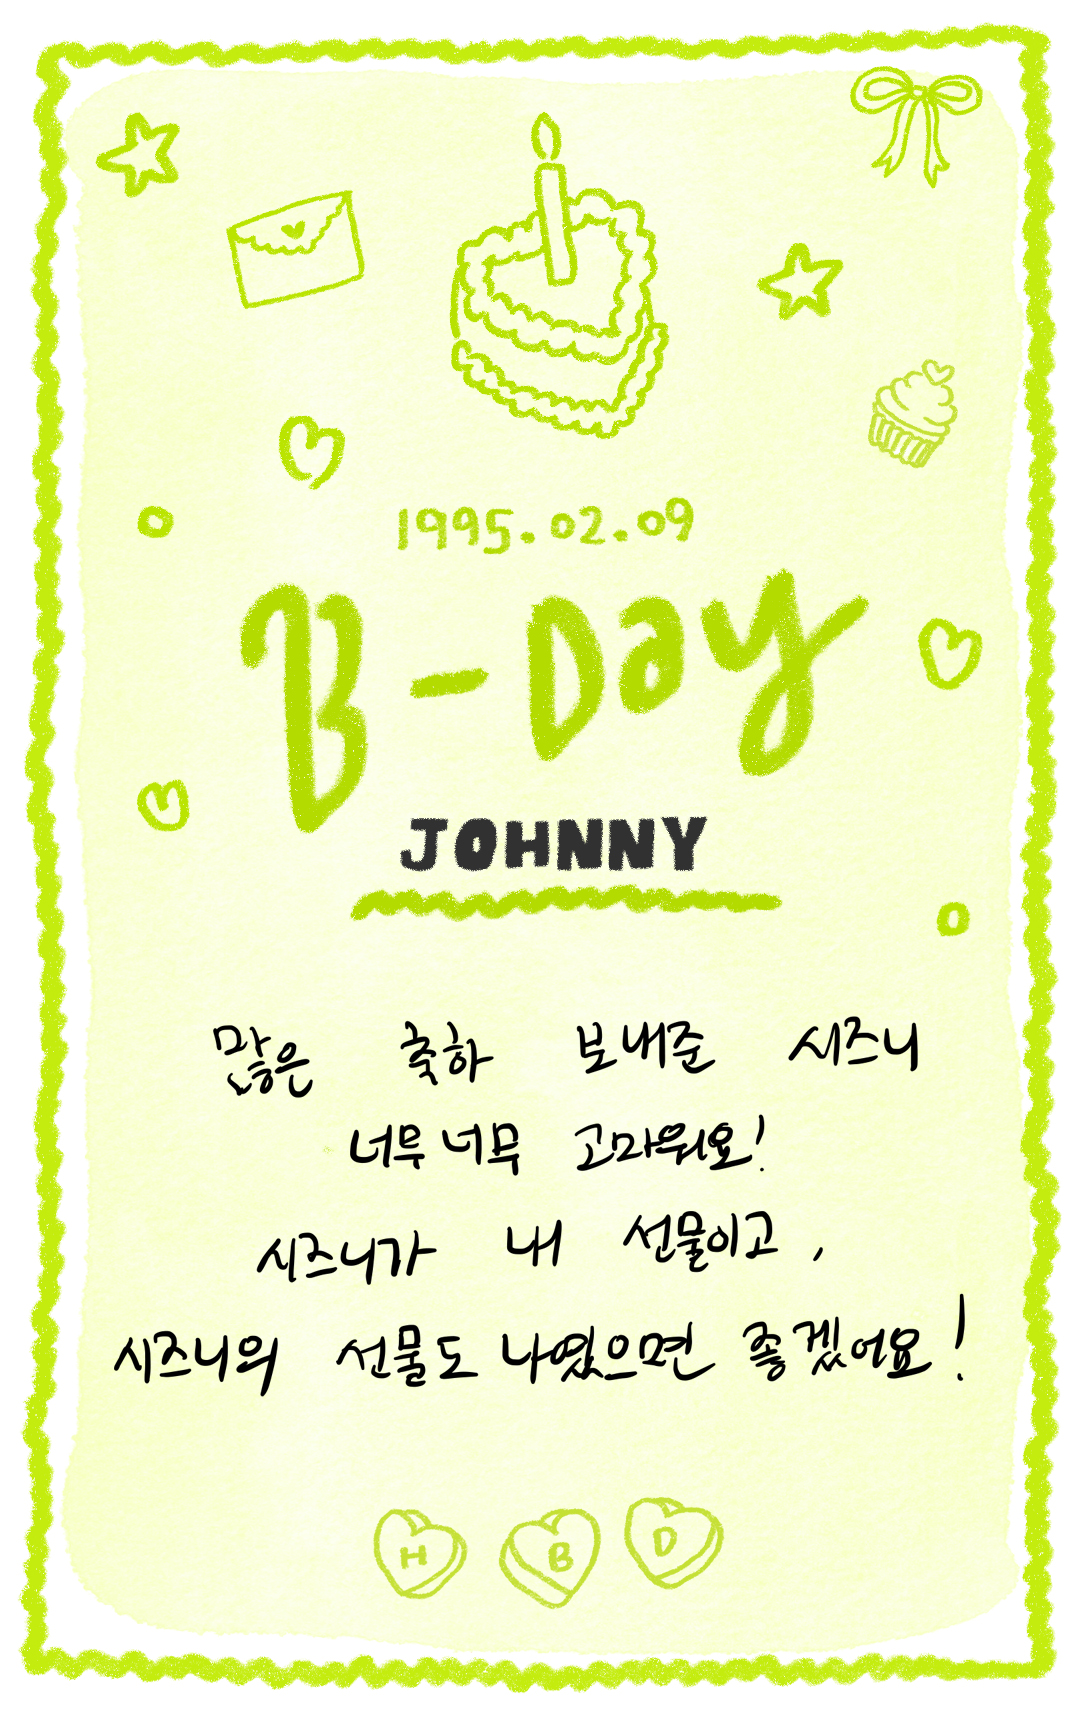 1995.02.09
B-Day
JOHNNY
많은 축하 보내준 시즈니
너무너무 고마워요!
시즈니가 내 선물이고,
시즈니의 선물도 나였으면 좋겠어요!
H B D